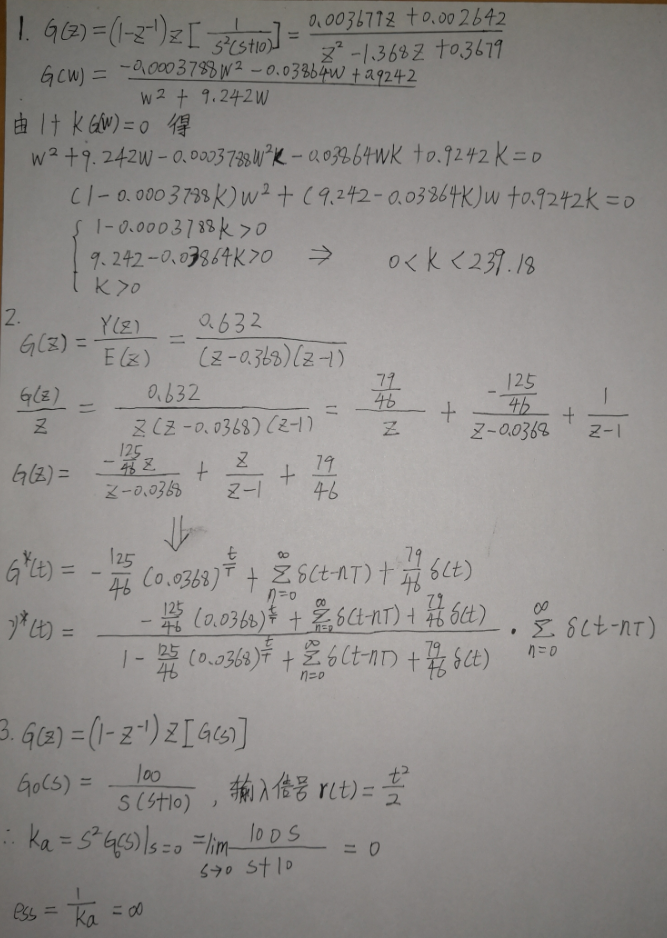 1. G(z)=(1-z⁻¹)z[1/(s²(s+10))]=(0.003679z+0.002642)/(z²-1.368z+0.3679)
G(w)=(-0.0003788w²-0.03864w+0.9242)/(w²+9.242w)
由1+KG(w)=0 得
w²+9.242w-0.0003788w²K-0.03864wK+0.9242K=0
(1-0.0003788K)w²+(9.242-0.03864K)w+0.9242K=0
{1-0.0003788K>0
9.242-0.03864K>0 ⇒ 0<K<239.18
K>0
2.
G(z)=Y(z)/E(z)=0.632/((z-0.368)(z-1))
G(z)/z=0.632/(z(z-0.0368)(z-1))=(79/46)/z+(-125/46)/(z-0.0368)+1/(z-1)
G(z)=(-125/46 z)/(z-0.0368)+z/(z-1)+79/46
⇓
G*(t)=-125/46(0.0368)^(t/T)+∑_{n=0}^{∞}δ(t-nT)+79/46 δ(t)
y*(t)=(-125/46(0.0368)^(t/T)+∑_{n=0}^{∞}δ(t-nT)+79/46 δ(t))/(1-125/46(0.0368)^(t/T)+∑_{n=0}^{∞}δ(t-nT)+79/46 δ(t))·∑_{n=0}^{∞}δ(t-nT)
3. G(z)=(1-z⁻¹)Z[G(s)]
G₀(s)=100/(s(s+10)),输入信号r(t)=t²/2
∴ Ka=s²G₀(s)|s=0=lim_{s→0} 100s/(s+10)=0
ess=1/Ka=∞